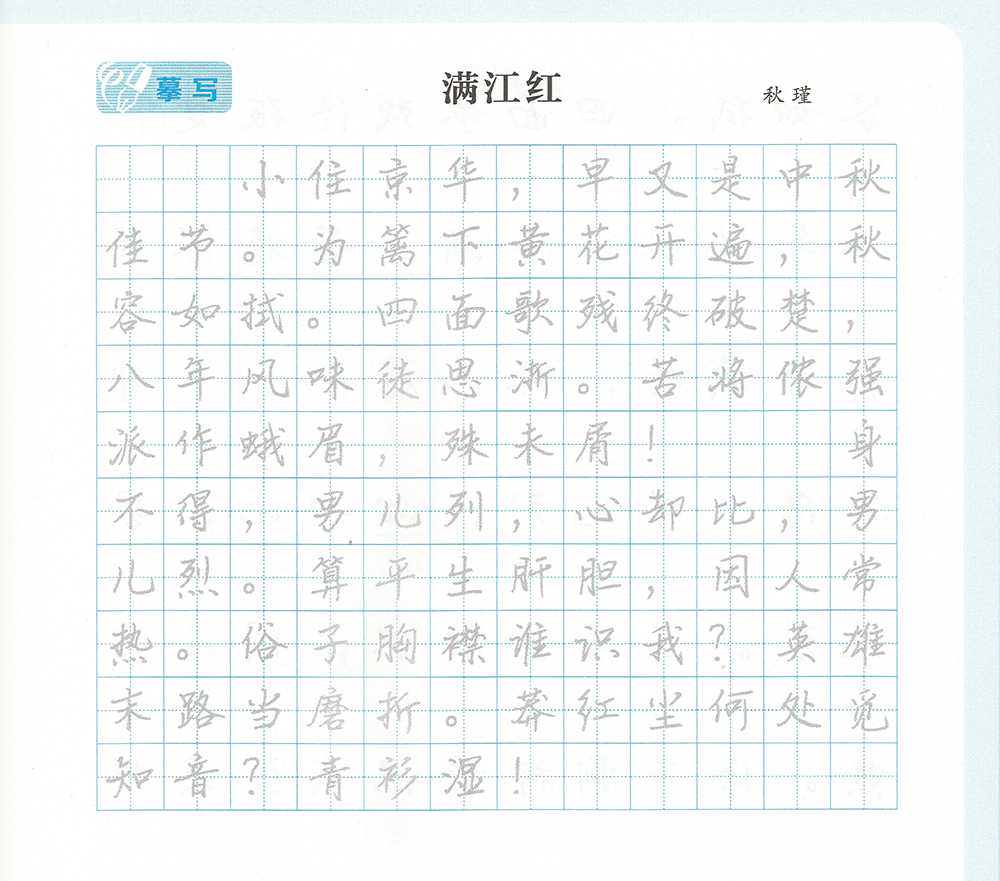 摹写
满江红
秋瑾
小住京华，早又是中秋
佳节。为篱下黄花开遍，秋
容如拭。四面歌残终破楚，
八年风味徒思浙。苦将侬强
派作蛾眉，殊未屑！ 身
不得，男儿列，心却比，男
儿烈。算平生肝胆，因人常
热。俗子胸襟谁识我？英雄
末路当磨折。莽红尘何处觅
知音？青衫湿！